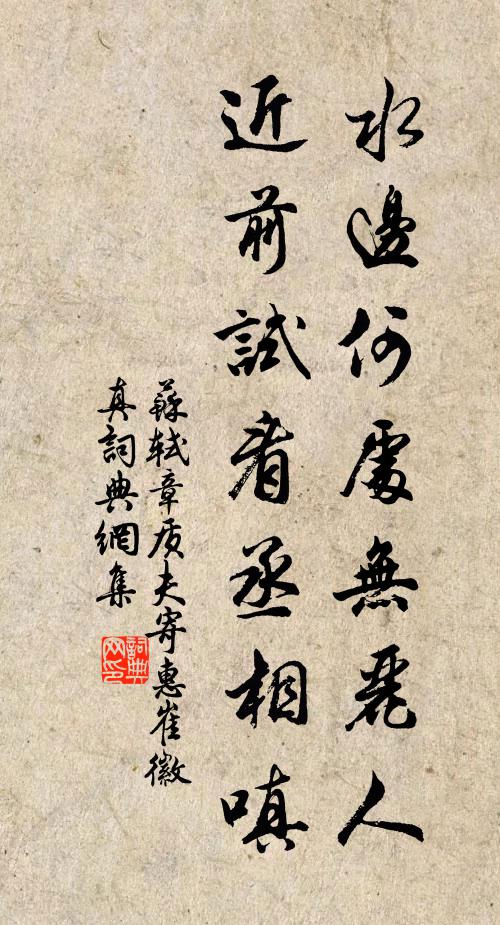 水邊何處無麗人
近前試看丞相嗔
蘇軾章质夫寄惠崔徽
真詞典網集
詞典网印